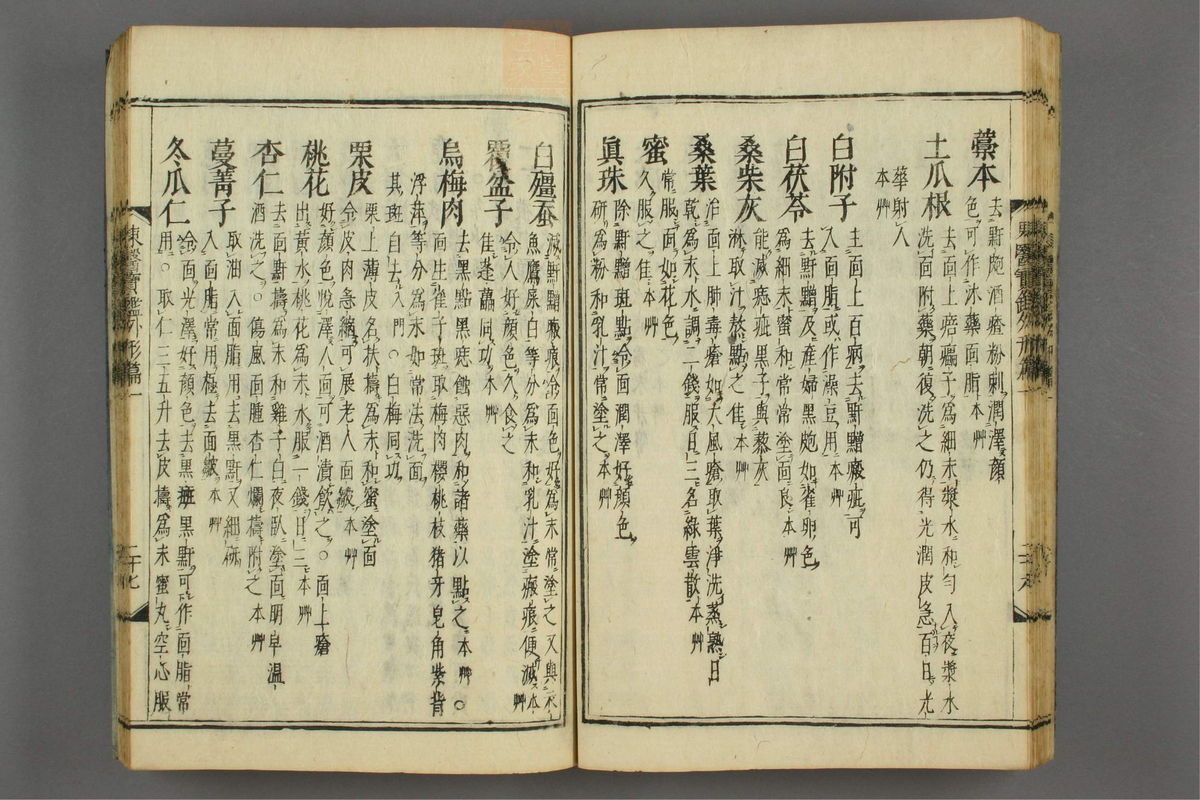 藁本
去䵟皰酒齄粉刺潤澤顏
色可作沐藥面脂本艸
土瓜根
去面上㾦㿔子爲細末漿水和匀入夜漿水
洗面附藥朝復洗之仍得光潤皮急百日光
華射人
本艸
白附子
主面上百病去䵟䵴瘢疵可
入面脂或作澡豆用本艸
白茯苓
去䵟䵴及產婦黑皰如雀卵色
爲細末蜜和常常塗面良本艸
桑柴灰
能滅痣疵黑子與藜灰
淋取汁熬點之佳本艸
桑葉
治面上肺毒瘡如大風瘡取葉淨洗蒸熟日
乾爲末水調二錢服日三名綠雲散本艸
蜜
常服面如花色
久服之佳本艸
眞珠
除䵟䵴斑點令面潤澤好顏色
研爲粉和乳汁常塗之本艸
白殭蚕
滅䵟䵴瘢痕令面色好爲末常塗之又與衣
魚鷹屎白等分爲末和乳汁塗瘢痕便滅本艸
覆盆子
令人好顏色久食之
佳蓬虆同功本艸
烏梅肉
去黑點黑痣蝕惡肉和諸藥以點之本艸○
面生雀子斑取梅肉櫻桃枝猪牙皂角紫背
浮萍等分爲末如常法洗面
其斑自去入門○白梅同功
栗皮
栗上薄皮名扶擣爲末和蜜塗面
令皮肉急縮可展老人面皺本艸
桃花
好顏色悅澤人面可酒漬飮之○面上瘡
出黃水桃花爲末水服一錢日三本艸
杏仁
去面䵟擣爲末和雞子白夜臥塗面明早溫
酒洗之○傷風面腫杏仁爛擣附之本艸
蔓菁子
取油入面脂用去黑䵟又細硏
入面脂常用極去面皺本艸
冬瓜仁
令面光澤好顏色去黑䵟黑䵟可作面脂常
用○取仁三五升去皮擣爲末蜜丸空心服
東醫寶鑑外形篇一
二十七